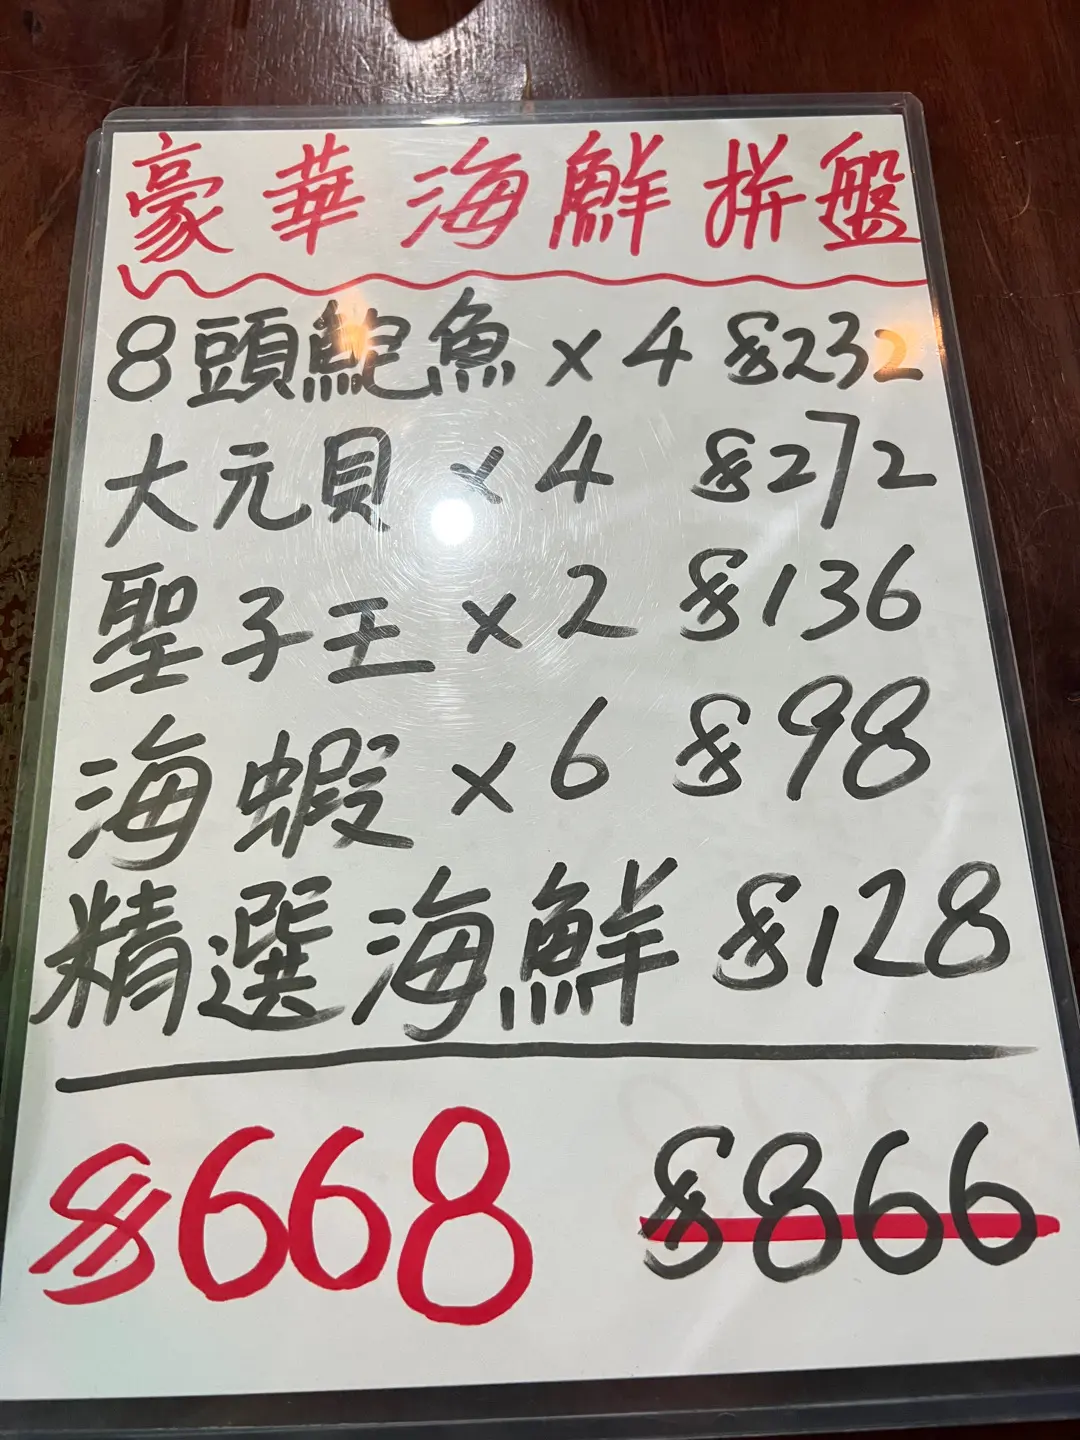 豪華海鮮拼盤
8頭鮑魚 x 4 $232
大元貝 x 4 $272
聖子王 x 2 $136
海蝦 x 6 $98
精選海鮮 $128
$668 $866